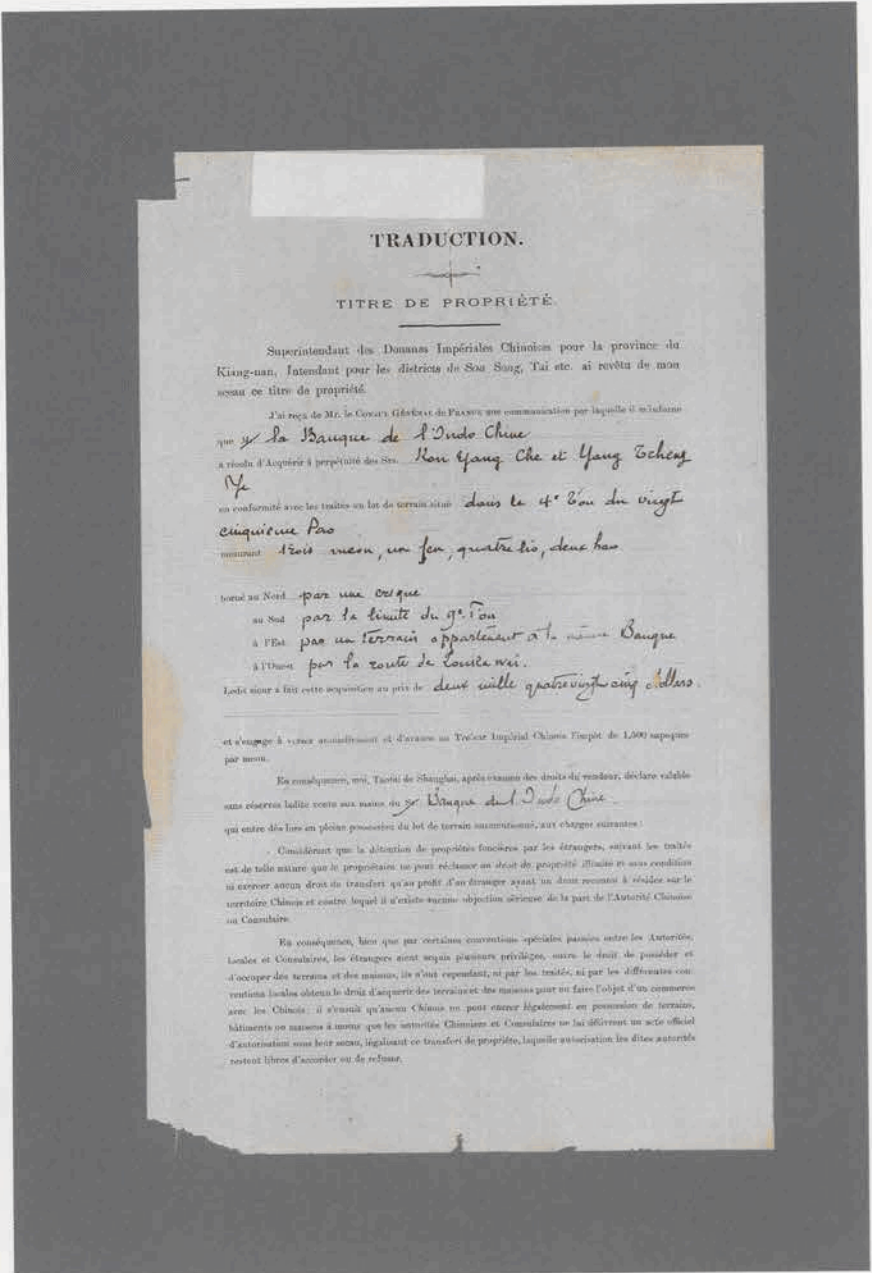 TRADUCTION.
TITRE DE PROPRIÉTÉ.
Superintendant des Douanes Impériales Chinoises pour la province du
Kiang-nan, Intendant pour les districts de Sou Song, Tai etc. ai revêtu de mon
sceau ce titre de propriété.
J'ai reçu de Mr. le CONSUL GÉNÉRAL de FRANCE une communication par laquelle il m'informe
que la Banque de l'Indo Chine
a résolu d'Acquérir à perpétuité des Srs. Kou Yang Che et Yang Tcheng
Ye
en conformité avec les traités un lot de terrain situé dans le 4e Tou du vingt
cinquieme Pao
mesurant trois meou, un fen, quatre lio, deux hao
borné au Nord par une crique
au Sud par la limite du 9e Tou
à l'Est par un terrain appartenant à la même Banque
à l'Ouest par la route de
Ledit sieur a fait cette acquisition au prix de deux mille quatre vingt cinq dollars.
et s'engage à verser annuellement et d'avance au Trésor Impérial Chinois l'impôt de 1,500 sapèques
par meou.
En conséquence, moi, Taotai de Shanghai, après examen des droits du vendeur, déclare valable
sans réserves ladite vente aux mains du Banque de l'Indo Chine
qui entre dès lors en pleine possession du lot de terrain susmentionné, aux charges suivantes :
Considérant que la détention de propriétés foncières par les étrangers, suivant les traités
est de telle nature que le propriétaire ne peut réclamer un droit de propriété illimité et sans condition
ni exercer aucun droit de transfert qu'au profit d'un étranger ayant un droit reconnu à résider sur le
territoire Chinois et contre lequel il n'existe aucune objection sérieuse de la part de l'Autorité Chinoise
ou Consulaire.
En conséquence, bien que par certaines conventions spéciales passées entre les Autorités,
locales et Consulaires, les étrangers aient acquis plusieurs privilèges, outre le droit de posséder et
d'occuper des terrains et des maisons, ils n'ont cependant, ni par les traités, ni par les différentes con
ventions locales obtenu le droit d'acquerir des terrains et des maisons pour en faire l'objet d'un commerce
avec les Chinois; il s'ensuit qu'aucun Chinois ne peut entrer légalement en possession de terrains,
bâtiments ou maisons à moins que les autorités Chinoises et Consulaires ne lui délivrent un acte officiel
d'autorisation sous leur sceau, légalisant ce transfert de propriété, laquelle autorisation les dites autorités
restent libres d'accorder ou de refuser.